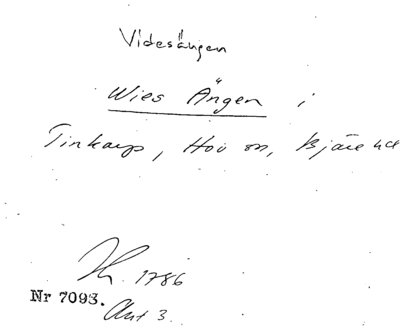 Videsängen
Wies Ängen i
Tinkarp, Hov sn, Bjäre hd
1786
Nr 7093.
Akt 3.